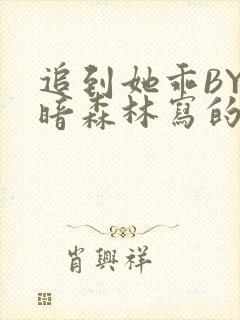 追到她乖BY
暗森林寫的
肖興祥